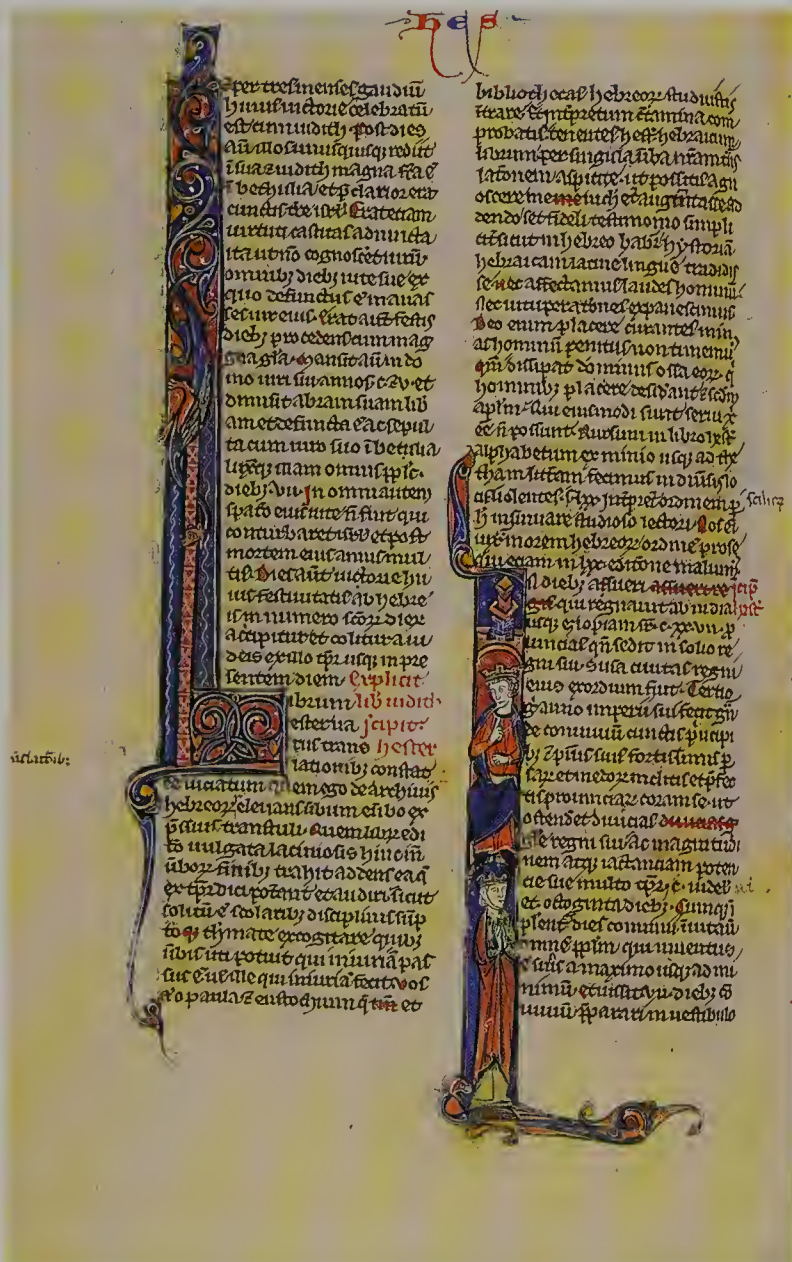 hes
per tres menses gaudiū
huius uictorie celebratū
est cum iudith post dies
aūt illos unusquisq; rediit
ī sua ⁊ iudith magna fcā ē
ī bethulia et p̄clarior erat
cunctis t̄re isrl̄ Erat etiam
uirtuti castitas adiuncta
ita ut nō cognosceret uirū
omnib; dieb; uite sue ex
quo defunctus ē manas
ses uir eius. erat aūt festis
dieb; procedens cum mag
na gl̄a. Mansit aūt in do
mo uiri sui annos c. v. et
dimisit abram suam lib
am et defuncta ē ac sepul
ta cum uiro suo ī betulia
luxitq; illam omnis ppl̄s.
dieb; .vii. In omni autem
spatio eius uite n̄ fuit qui
conturbaret isrl̄ et post
mortem eius annis mul
tis. Dies aūt uictorie hu
ius festiuitatis ab hebre
is in numero scōr̄ dier̄
accipitur et colitur a iu
deis ex illo tp̄r usq; in pre
sentem diem. Explicit
ibrum lib iudith
ester ua īcipit
riis trans hester
latorib; constat
ēē uiciatum quem ego de archiuis
hebreor̄ eleuans uerbum e ūbo ex
p̄ssius transtuli. Quem libr̄ edi
tō uulgata laciniosis hinc īn̄
ūbor̄ finib; trahit addens ea q̄
ex tp̄r dici poterant et audiri. sicut
solitū ē scolarib; disciplinis sūp
to themate excogitare quib;
ūbis uti potuit qui iniuriā pas
sus ē uel ille qui iniuriā fecit. vos
aūo paula ⁊ eustochium q̄m et
bibliothecas hebreor̄ studuistis
ītrare ⁊ īt̄pretum c̄tamina com
probatis tenentes hest̄ hebraicum
librum per singula ūba nr̄am trās
lationem aspicite. ut possitis agn
oscere me nichil et augm̄tasse ad
dendo set fideli testimonio simpli
cit̄ sicut in hebreo habr̄ hystoriā
hebraicam latine lingue tradidis
se nec affectamus laudes hominū
nec uituperationes expauescimus
Deo enim placere curantes min
as hominū penitus non timemus
qm̄ dissipat dominus ossa eor̄. q̄
hominib; placere desid̄ant ⁊ scd̄m
apl̄m. Qui eiusmodi sunt serui x̄
ēē n̄ possunt. Rursum in libro hest̄
alphabetum ex minio usq; ad the
tham litt̄am fecimus in diūsis lo
cis uolentes. lxx īt̄pret̄ ordinem p̄
h̄ insinuare studioso lectori.
iuxᵃ morem hebreor̄ ordinē prose
qui etiam in lxx. editione maluim9
n dieb; assueri īcip
qui regnauit ab india hest̄
usq; etiopiam. c. xx. vii. p̄
uincias qn̄ sedit in solio re
gni sui. Susa ciuitas regni
eius exordium fuit. Tertio
g anno imperii sui fecit grā
de conuiuiū cunctis p̄ncipi
b; ⁊ p̄uis suis fortissimis p̄
sar̄ et medor̄ inclitis et p̄fec
tis prouinciar̄ coram se. ut
ostend̄et diuicias
gl̄e regni sui. ac magnitudi
nem atq; iactantiam poten
cie sue multo tp̄r. c. uidel
et octoginta dieb;. Cumq;
īplent̄ dies conuiuii. īuitau
omnē ppl̄m. qui inuentus
ē susis a maximo usq; ad mi
nimū. et iussit. vii. dieb; 9
uiuiū p̄parari in uestibulo